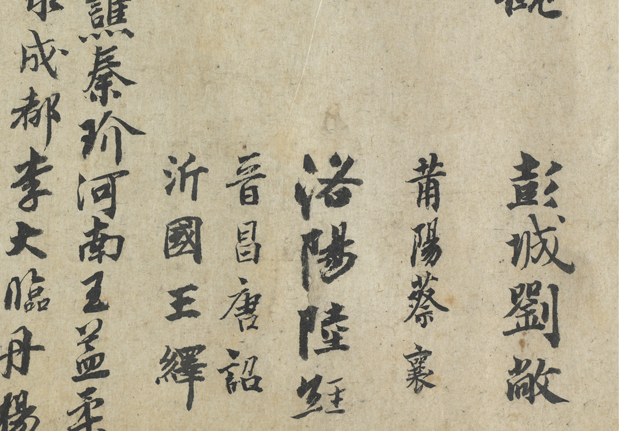 彭城劉敞
莆陽蔡襄
洛陽陸經
晉昌唐詔
沂國王繹
譙秦玠河南王益柔
成都李大臨丹楊